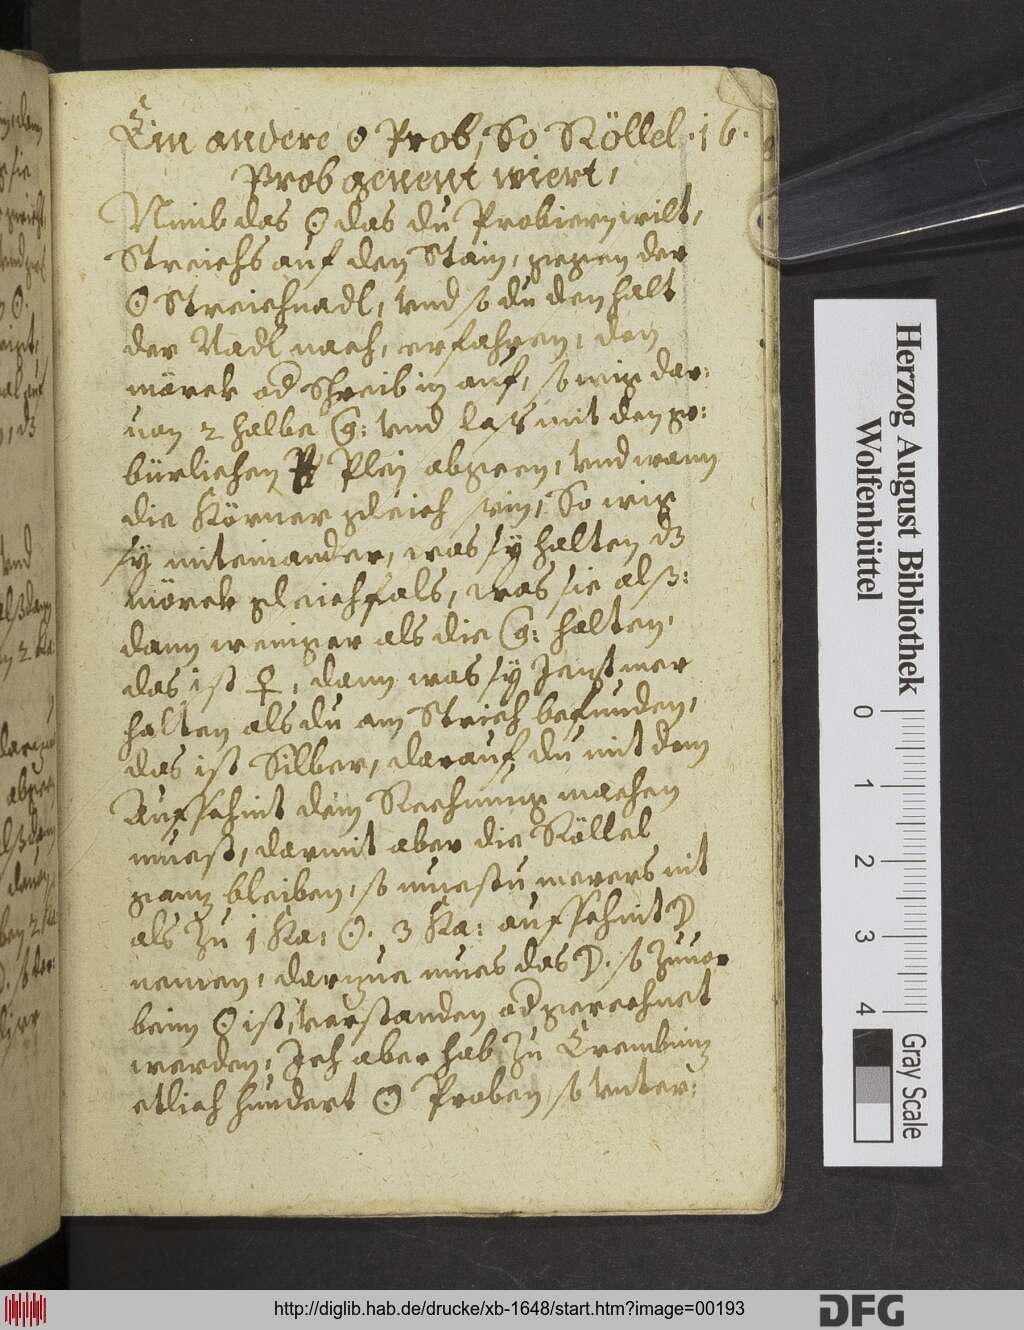 Ein andere ☉ Prob, So Röllel · 16 ·
Prob genent wiert,
Nimb das ☉ das du Probiern wilt,
Streichs auf den Stain, gegen der
☉ Streichnadl, vnd so du den halt
der Nadl nach, erfahren, den
mörck od schreib in auf, so wig dar:
uon 2 halbe C g: vnd laß mit den ge:
bürlichen Pley abgeen, vnd wann
die Körner gleich sein, So wig
sy miteinander, was sy halten dz
mörck gleichfals, was sie alß:
dann weniger als die C g: halten,
das ist ♀, dann was sy Jenzt mer
halten als du am Strich befunden,
das ist Silber, darauf du mit dem
Aufschnit dein Rechnung machen
muest, darmit aber die Röllel
ganz bleiben, so muestu merers nit
als Zu 1 Ka: ☉. 3 Ka: aufschnit ☽
nemen, darzue mues das ☽. so zuuor
beim ☉ ist, verstanden od gerechnet
werden, Ich aber hab Zu Crembniz
etlich hundert ☉ Proben, so vnter:
Herzog August Bibliothek
Wolfenbüttel
0 1 2 3 4
Gray Scale
http://diglib.hab.de/drucke/xb-1648/start.htm?image=00193
DFG